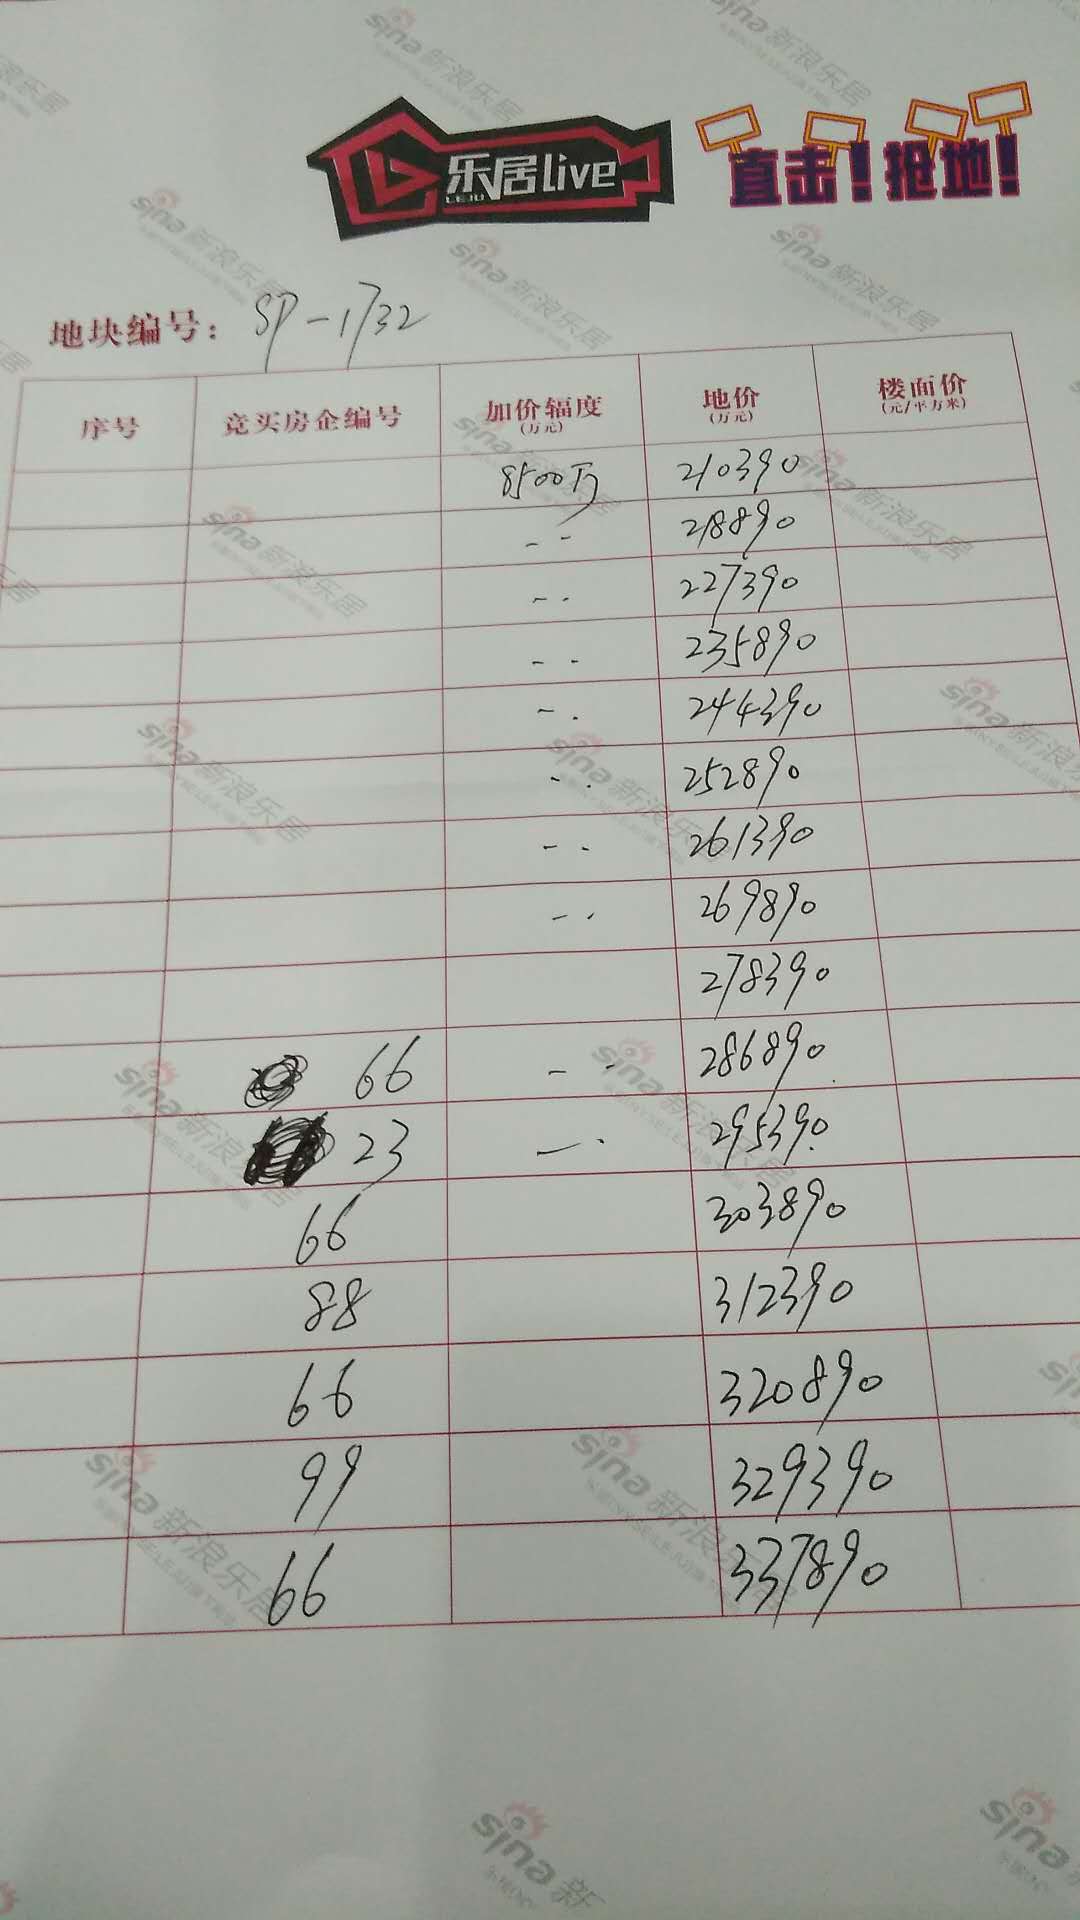 乐居live
LEJU
直击!抢地!
地块编号: SP-1732
序号 竞买房企编号 加价辐度(万元) 地价(万元) 楼面价(元/平方米)
8500万 210390
-- 218890
-- 227390
-- 235890
-- 244390
-- 252890
-- 261390
-- 269890
278390
66 -- 286890
23 -- 295390
66 303890
88 312390
66 320890
99 329390
66 337890
sina新浪乐居